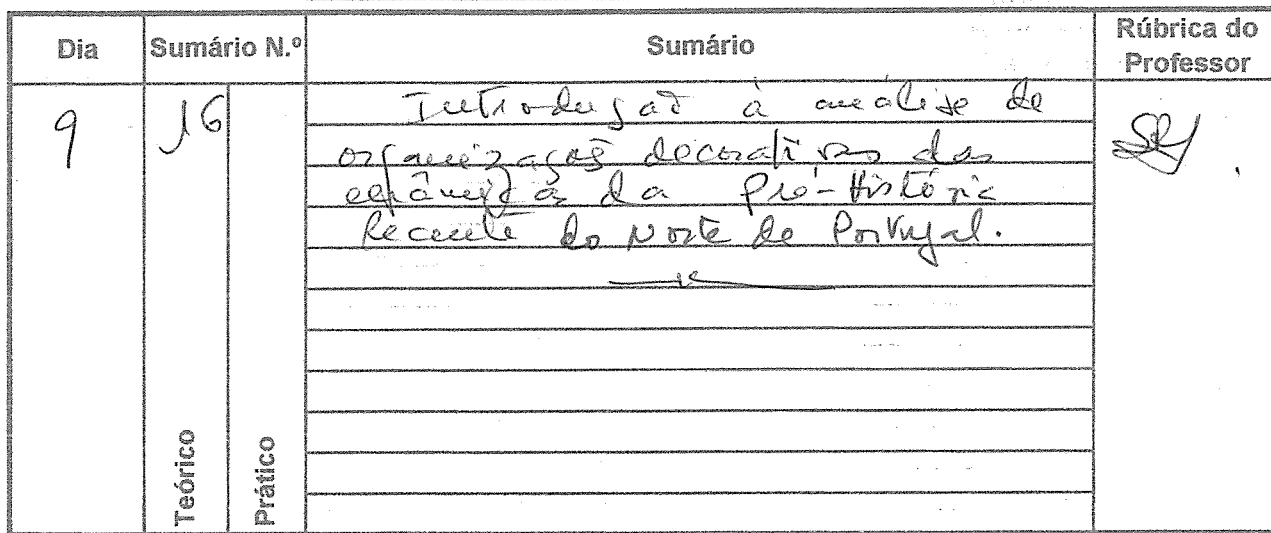 Dia Sumário N.º Sumário Rúbrica do Professor
9 16
Introdução à análise de
organizações decorativas das
cerâmicas da Pré-História
Recente do Norte de Portugal.
Teórico Prático